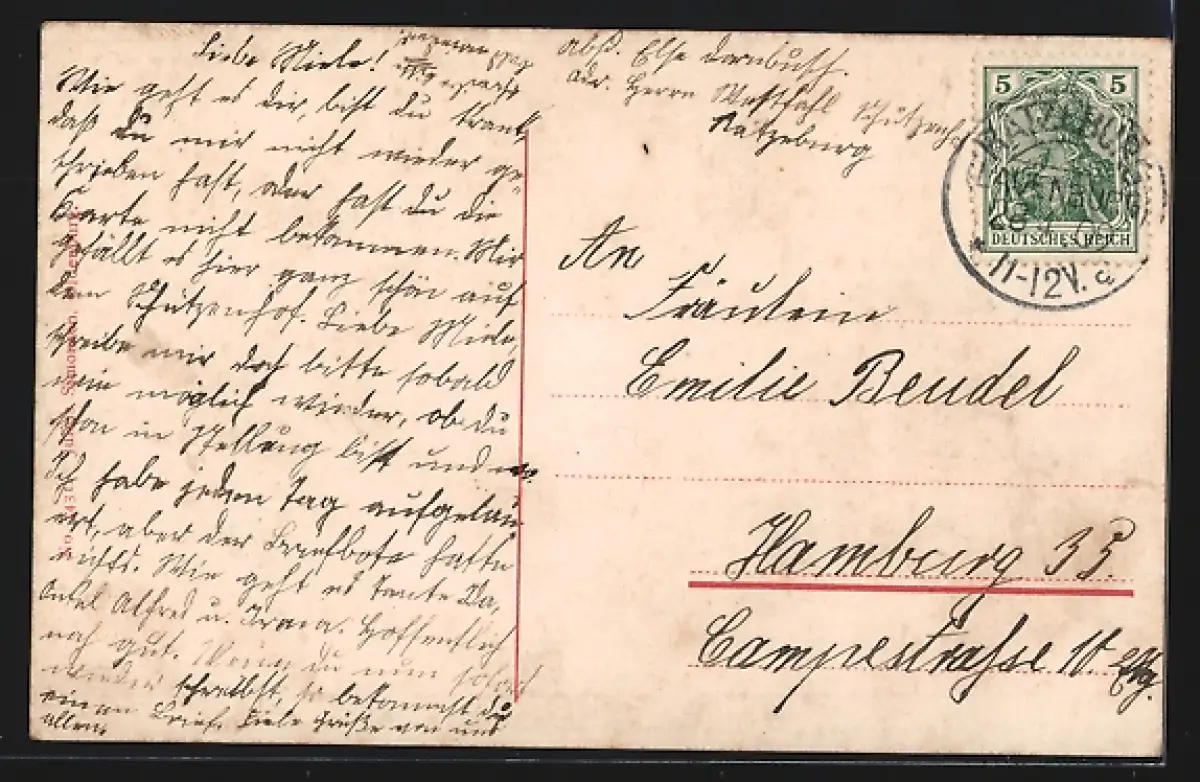 Liebe Miele!
Wie geht es dir, bist du krank
daß du mir nicht wieder ge-
schrieben hast, oder hast du die
Karte nicht bekommen. Mir
gefällt es hier ganz schön auf
dem Schützenhof. Liebe Miele,
schreibe mir doch bitte sobald
wie möglich wieder, ob du
schon in Stellung bist und
Ich habe jeden Tag aufgelau-
ert, aber der Briefbote hatte
nichts. Wie geht es Tante
Onkel Alfred u. Hoffentlich
noch gut. Wenn du nun sofort
wieder schreibst, so bekommst du
einen Brief. Viele Grüße von uns
allen
Abs. Else Dornbusch.
Adr. Herrn Westfahl Schützenhof
Ratzeburg
5 5
DEUTSCHES REICH
11-12V.
An
Fräulein
Emilie Beudel
Hamburg 33.
Campestrasse 10 Etg.